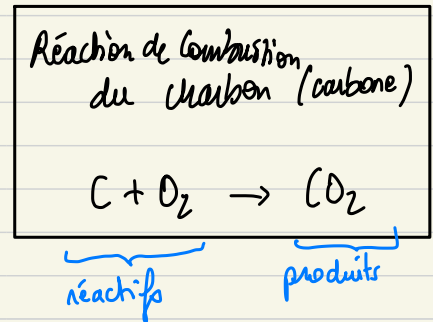 Réaction de Combustion
du charbon (carbone)
C + O₂ → CO₂
réactifs produits